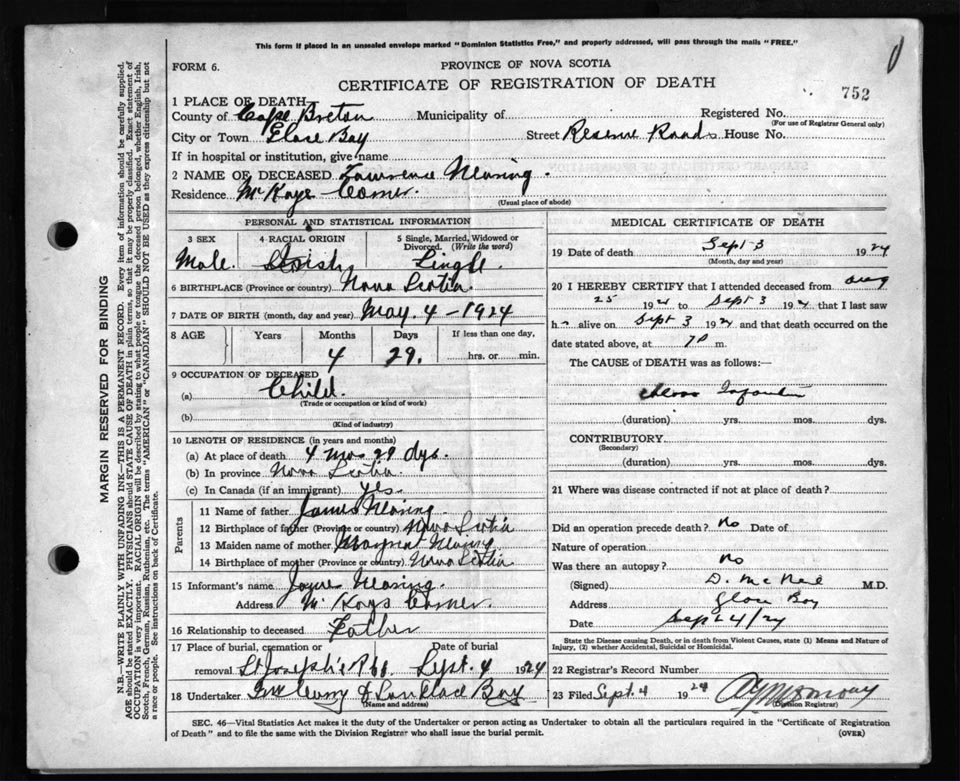 This form if placed in an unsealed envelope marked "Dominion Statistics Free," and properly addressed, will pass through the mails "FREE."
FORM 6.
PROVINCE OF NOVA SCOTIA
CERTIFICATE OF REGISTRATION OF DEATH
752
MARGIN RESERVED FOR BINDING
N.B.—WRITE PLAINLY WITH UNFADING INK—THIS IS A PERMANENT RECORD. Every item of information should be carefully supplied.
AGE should be stated EXACTLY. PHYSICIANS should STATE CAUSE OF DEATH in plain terms, so that it may be properly classified. Exact statement of
OCCUPATION is very important. RACIAL ORIGIN will be described by stating to what people or tongue the deceased person belonged, whether English, Irish,
Scotch, French, German, Russian, Ruthenian, etc. The terms "AMERICAN" or "CANADIAN" SHOULD NOT BE USED as they express citizenship but not
a race or people. See instructions on back of Certificate.
1 PLACE OF DEATH
County of Cape Breton Municipality of Registered No.
(For use of Registrar General only)
City or Town Glace Bay Street Reserve Road House No.
If in hospital or institution, give name
2 NAME OF DECEASED Lawrence Nearing.
Residence McKays Corner.
(Usual place of abode)
PERSONAL AND STATISTICAL INFORMATION
3 SEX 4 RACIAL ORIGIN 5 Single, Married, Widowed or Divorced. (Write the word)
Male. Single.
6 BIRTHPLACE (Province or country) Nova Scotia
7 DATE OF BIRTH (month, day and year) May. 4 - 1924
8 AGE Years Months Days If less than one day,
4 29. hrs. or min.
9 OCCUPATION OF DECEASED
(a) Child.
(Trade or occupation or kind of work)
(b)
(Kind of industry)
10 LENGTH OF RESIDENCE (in years and months)
(a) At place of death 4 mos 29 dys.
(b) In province Nova Scotia
(c) In Canada (if an immigrant) yes.
Parents
11 Name of father James Nearing
12 Birthplace of father (Province or country) Nova Scotia
13 Maiden name of mother Nearing
14 Birthplace of mother (Province or country) Nova Scotia
15 Informant's name Nearing.
Address McKays Corner.
16 Relationship to deceased Father
17 Place of burial, cremation or removal Date of burial
St Joseph's Sept. 4 1924
18 Undertaker Bay
(Name and address)
MEDICAL CERTIFICATE OF DEATH
19 Date of death Sept 3 1924
(Month, day and year)
20 I HEREBY CERTIFY that I attended deceased from Aug
25 1924 to Sept 3 1924 that I last saw
h alive on Sept 3 1924 and that death occurred on the
date stated above, at 7 p m.
The CAUSE of DEATH was as follows:—
(duration) yrs. mos. dys.
CONTRIBUTORY
(Secondary)
(duration) yrs. mos. dys.
21 Where was disease contracted if not at place of death?
Did an operation precede death? No Date of
Nature of operation
Was there an autopsy? No
(Signed) D. McNeil M.D.
Address Glace Bay
Date Sept 4/24
State the Disease causing Death, or in death from Violent Causes, state (1) Means and Nature of
Injury, and (2) whether Accidental, Suicidal or Homicidal.
22 Registrar's Record Number
23 Filed Sept. 4 1924
(Division Registrar)
SEC. 46—Vital Statistics Act makes it the duty of the Undertaker or person acting as Undertaker to obtain all the particulars required in the "Certificate of Registration
of Death" and to file the same with the Division Registrar who shall issue the burial permit. (OVER)